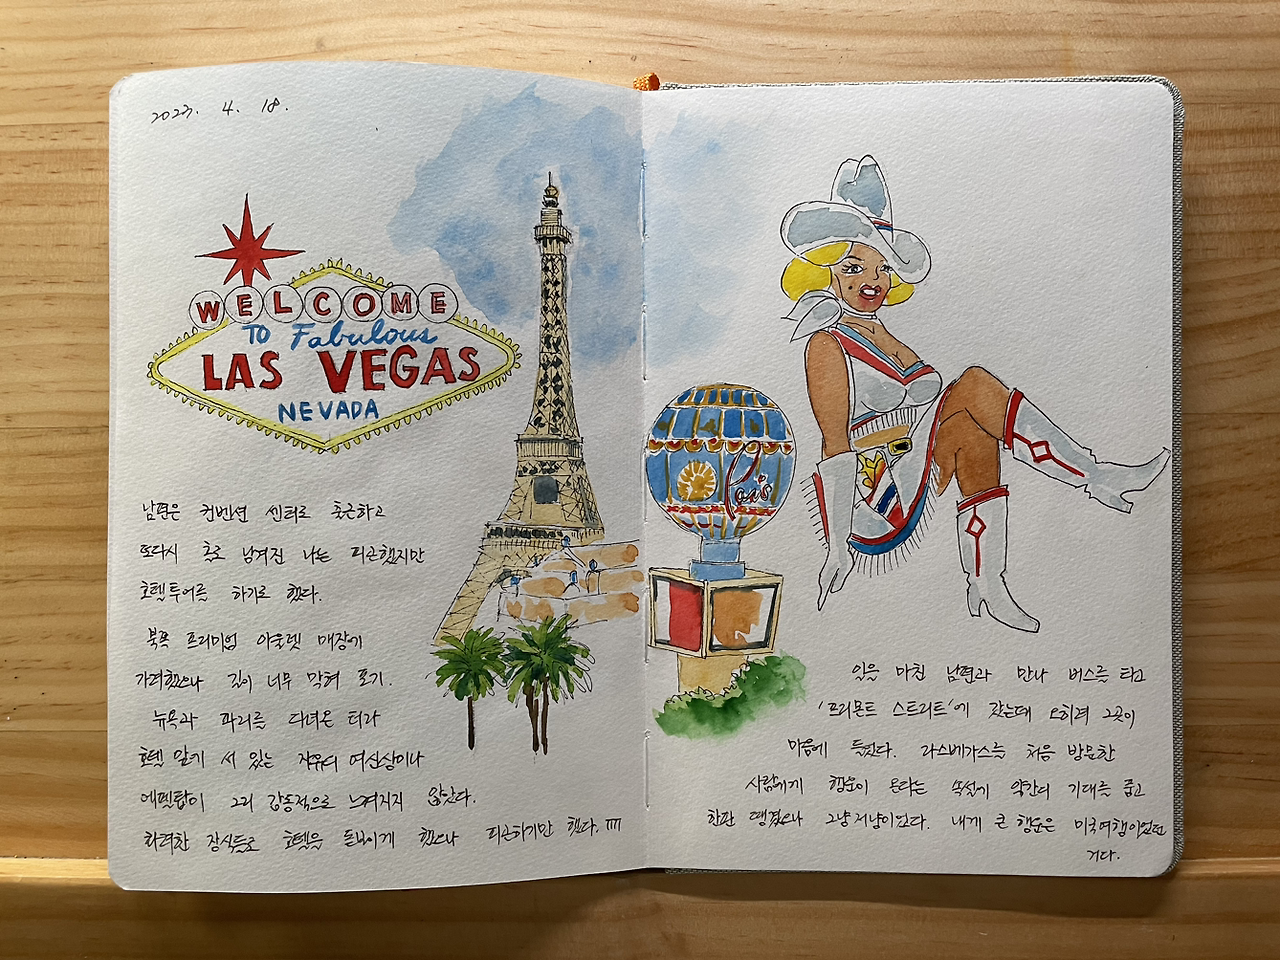 2023. 4. 18.
WELCOME
TO Fabulous
LAS VEGAS
NEVADA
Paris
남편은 컨벤션 센터로 출근하고
또다시 홀로 남겨진 나는 피곤했지만
호텔투어를 하기로 했다.
북쪽 프리미엄 아울렛 매장에
가려했으나 길이 너무 막혀 포기.
뉴욕과 파리를 다녀온 터라
호텔 앞에 서 있는 자유의 여신상이나
에펠탑이 그리 감동적으로 느껴지지 않았다.
화려한 장식들로 호텔을 돋보이게 했으나 피곤하기만 했다.
일을 마친 남편과 만나 버스를 타고
'프리몬트 스트리트'에 갔는데 오히려 그곳이
마음에 들었다. 라스베가스를 처음 방문한
사람에게 행운이 온다는 속설에 약간의 기대를 품고
한판 땡겼으나 그냥저냥이었다. 내게 큰 행운은 미국여행이었던
거다.